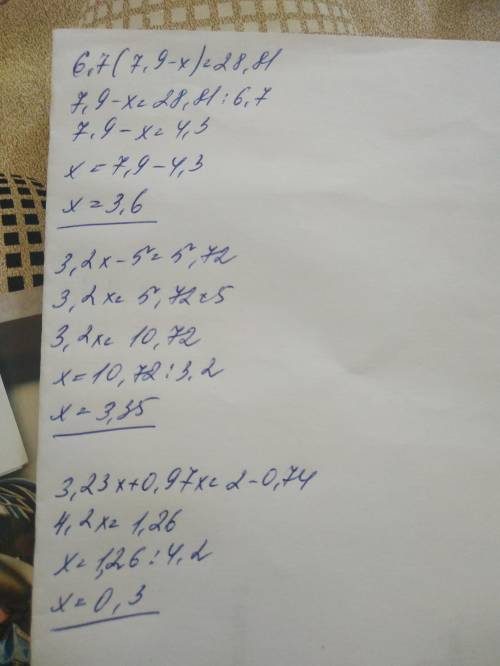 6,7(7,9-x)=28,81
7,9-x=28,81:6,7
7,9-x=4,3
x=7,9-4,3
x=3,6
3,2x-5=5,72
3,2x=5,72+5
3,2x=10,72
x=10,72:3,2
x=3,35
3,23x+0,97x=2-0,74
4,2x=1,26
x=1,26:4,2
x=0,3